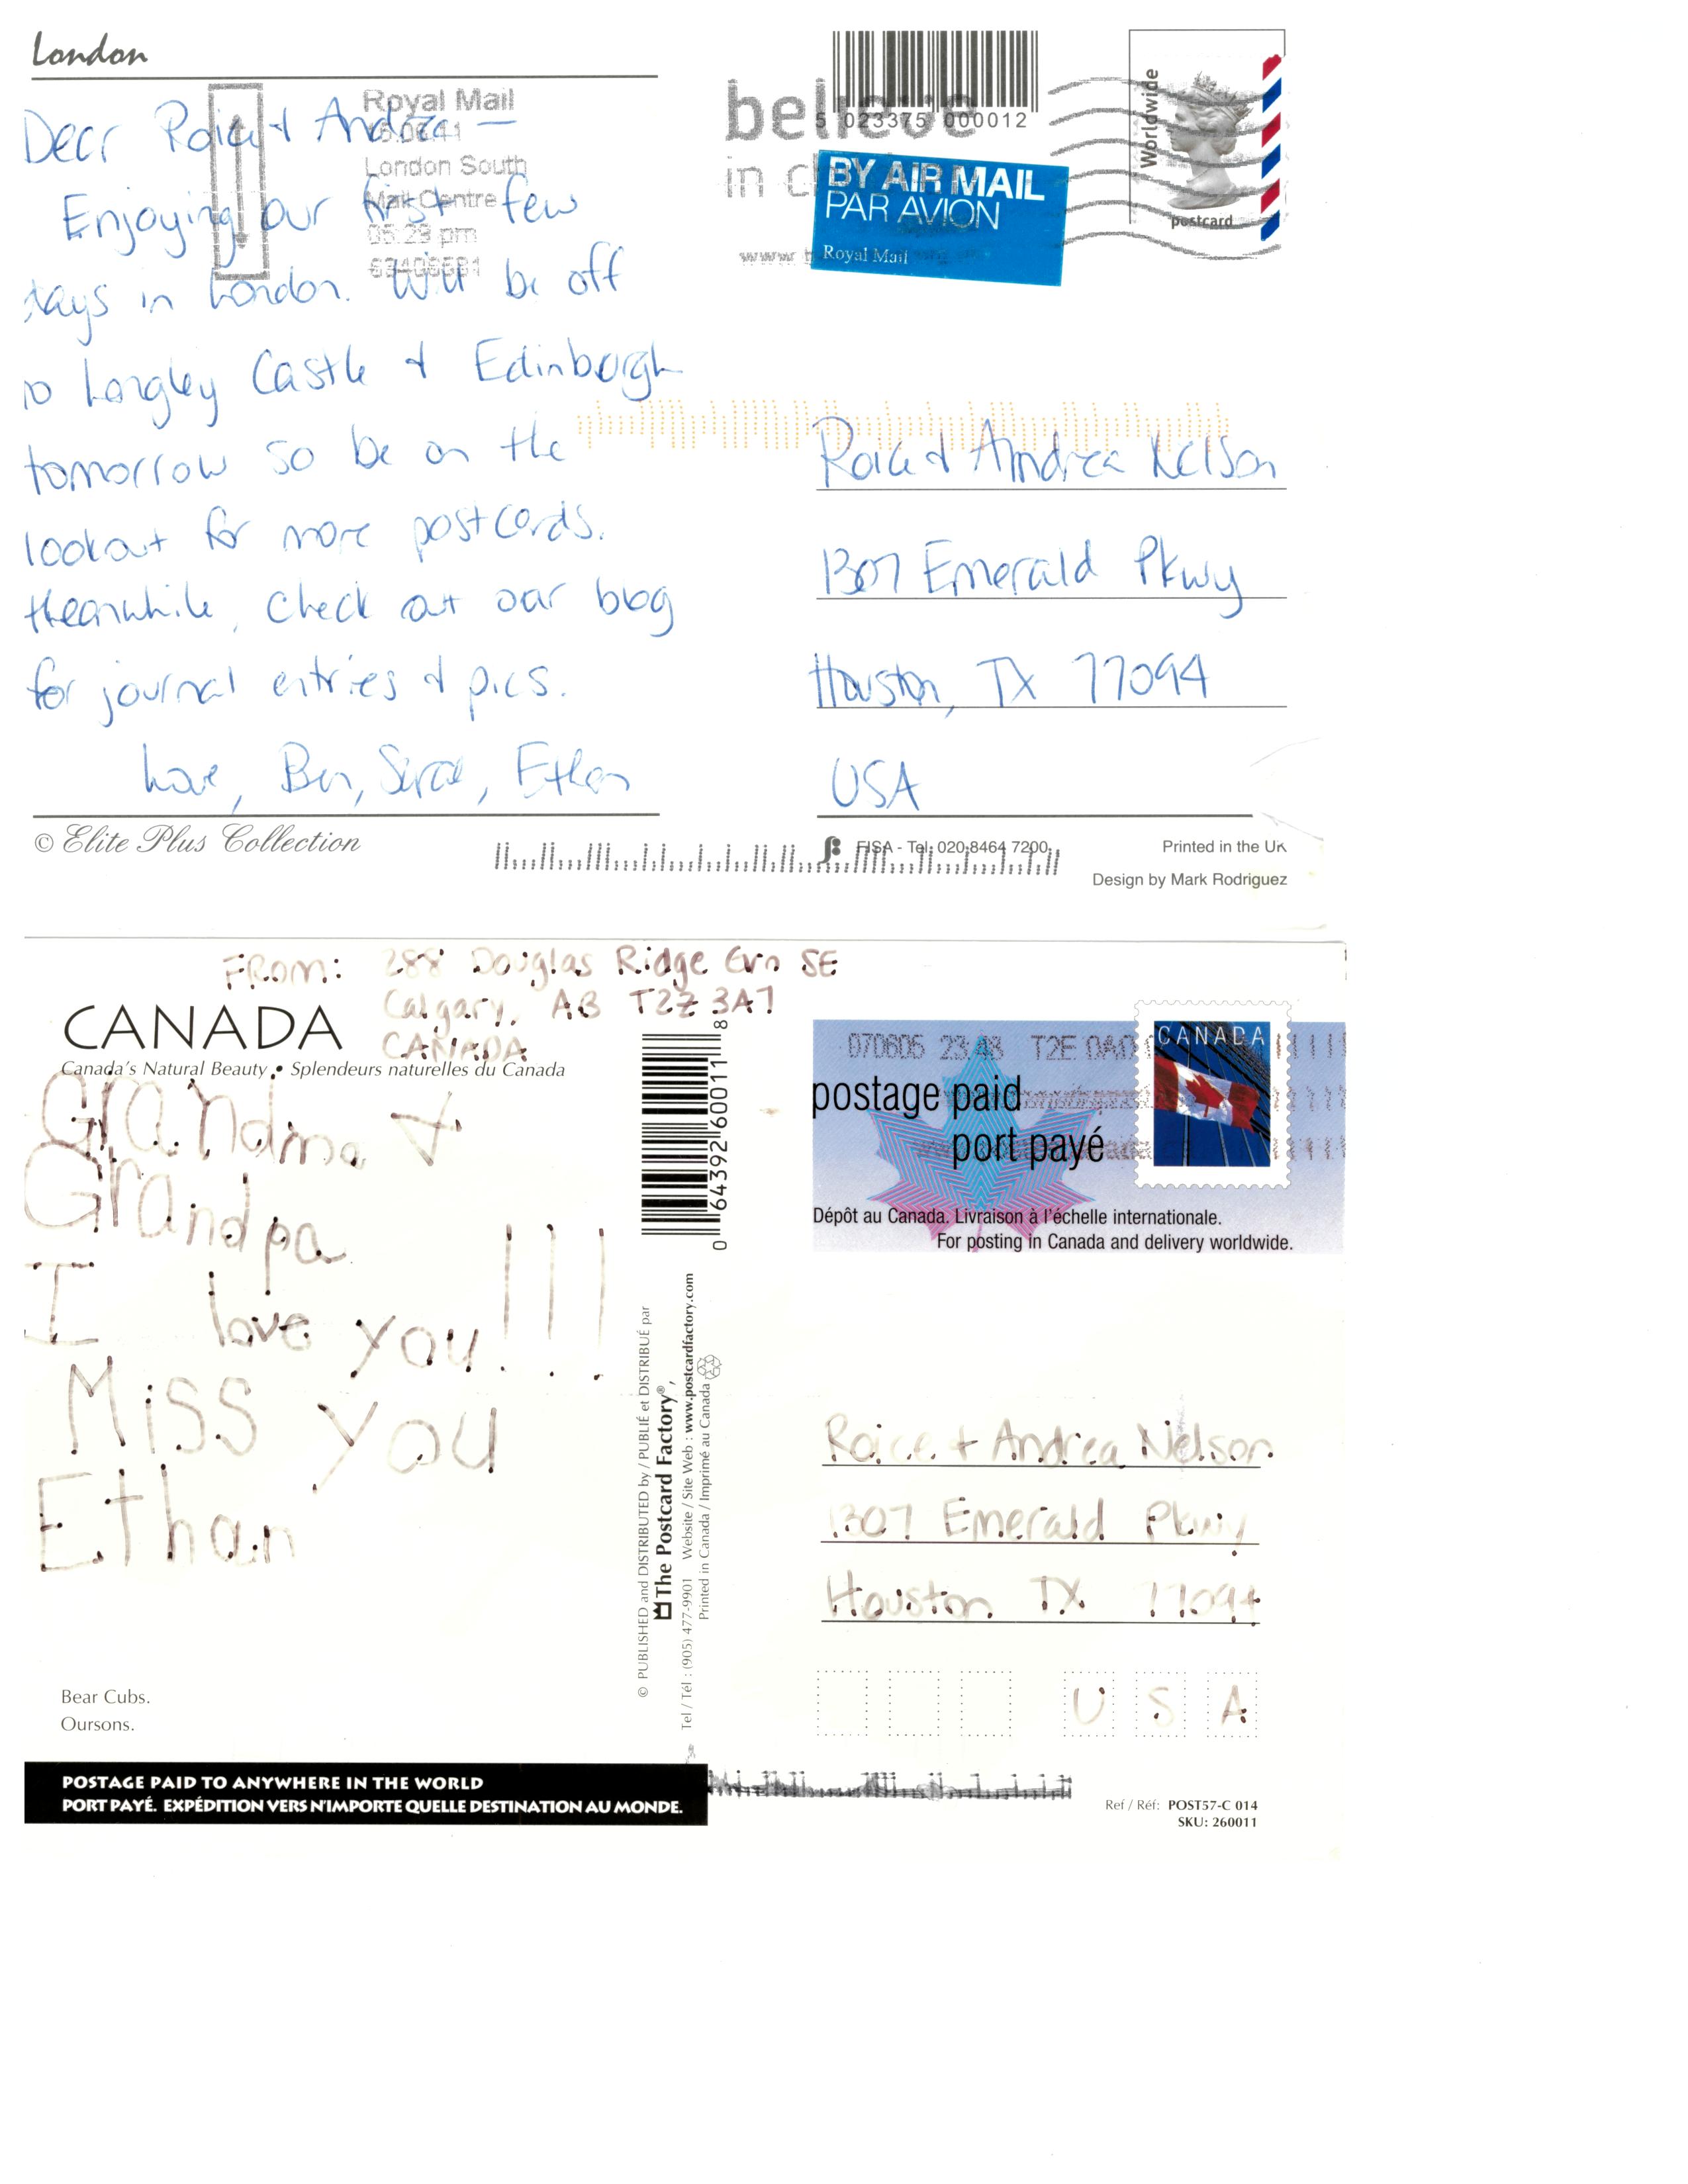 London
Royal Mail
London South
Mail Centre
05:29 pm
Dear Roice & Andrea —
Enjoying our first few
days in London. Will be off
to Langley Castle & Edinburgh
tomorrow so be on the
lookout for more postcards.
Meanwhile, check out our blog
for journal entries & pics.
Love, Ben, Sarah, Ethan
© Elite Plus Collection
believe
in
5 023375 000012
BY AIR MAIL
PAR AVION
Royal Mail
www
Worldwide
postcard
Roice & Andrea Nelson
1307 Emerald Pkwy
Houston, TX 77094
USA
FISA - Tel: 020 8464 7200
Printed in the UK
Design by Mark Rodriguez
FROM: 288 Douglas Ridge Grn SE
Calgary, AB T2Z 3A7
CANADA
CANADA
Canada's Natural Beauty • Splendeurs naturelles du Canada
Grandma &
Grandpa
I love you!!!
Miss you
Ethan
Bear Cubs.
Oursons.
POSTAGE PAID TO ANYWHERE IN THE WORLD
PORT PAYÉ. EXPÉDITION VERS N'IMPORTE QUELLE DESTINATION AU MONDE.
0 64392 60011 8
© PUBLISHED and DISTRIBUTED by / PUBLIÉ et DISTRIBUÉ par
The Postcard Factory®,
Tel / Tél : (905) 477-9901 Website / Site Web : www.postcardfactory.com
Printed in Canada / Imprimé au Canada
070605 23 T2E 0A0
CANADA
postage paid
port payé
Dépôt au Canada. Livraison à l'échelle internationale.
For posting in Canada and delivery worldwide.
Roice & Andrea Nelson
1307 Emerald Pkwy
Houston TX 77094
U S A
Ref / Réf: POST57-C 014
SKU: 260011